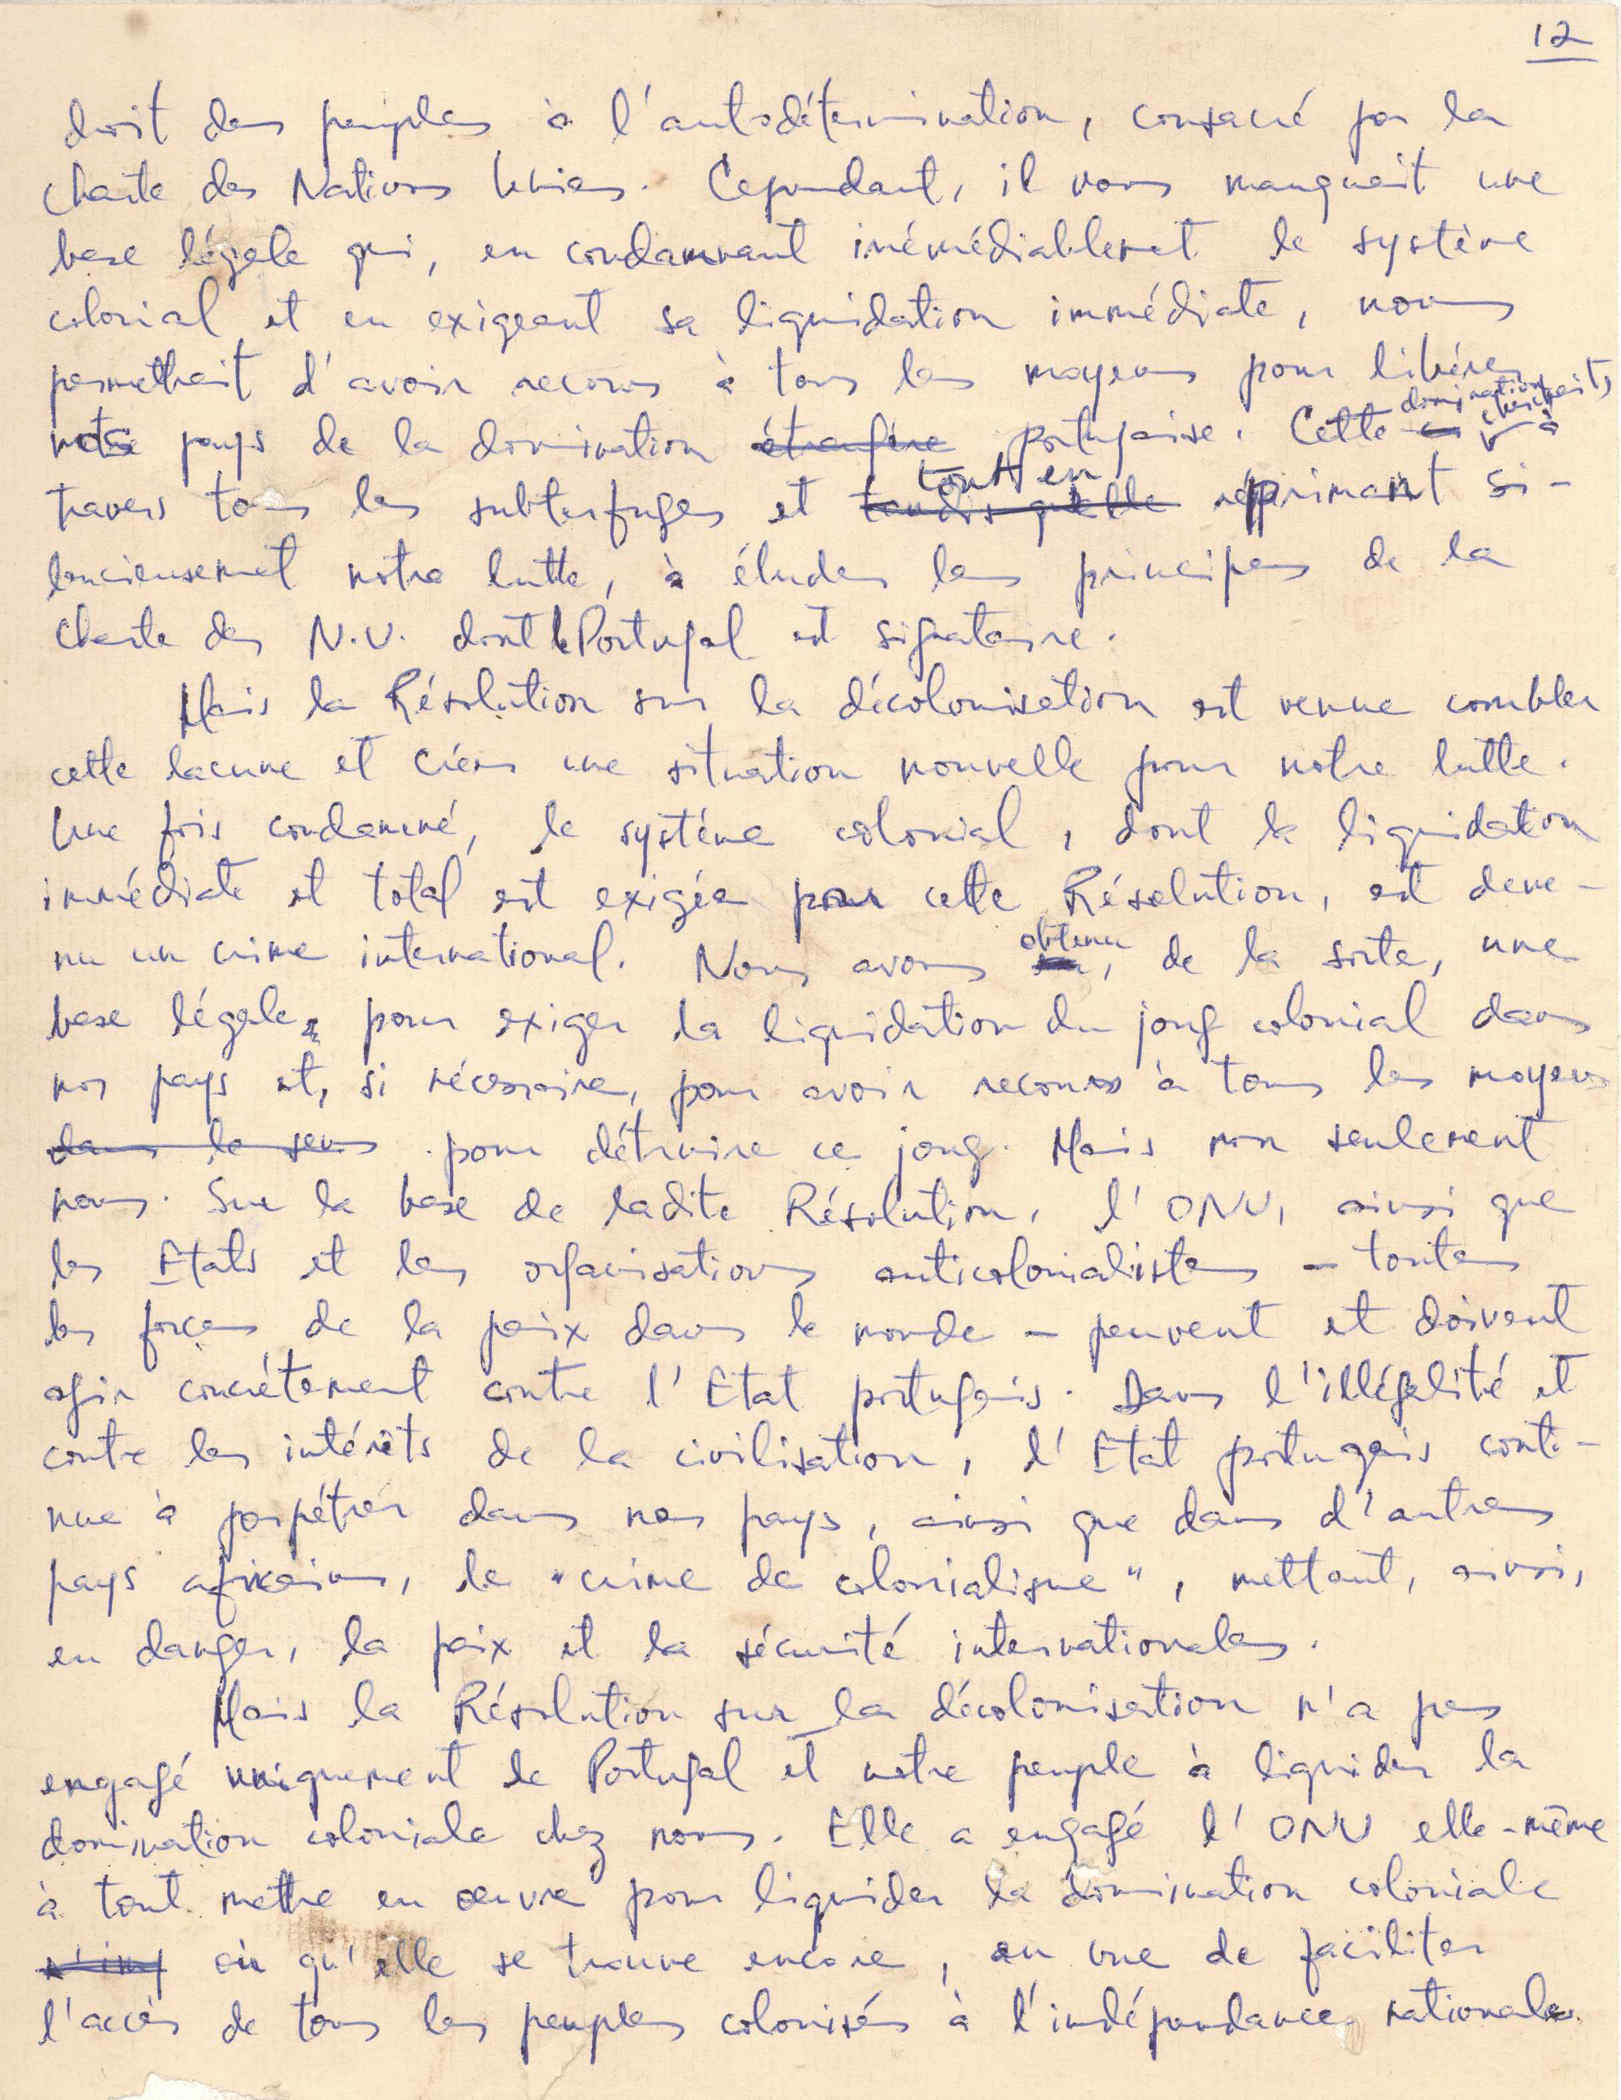 12
droit des peuples à l'autodétermination, consacré par la
Charte des Nations Unies. Cependant, il nous manquait une
base légale qui, en condamnant irrémédiablemet le système
colonial et en exigeant sa liquidation immédiate, nous
permettrait d'avoir recours à tous les moyens pour libérer
notre pays de la domination étrangère portugaise. Cette domination cherchait, à
travers tous les subterfuges et tout en réprimant si-
lencieusemet notre lutte, à éluder les principes de la
Charte des N.U. dont le Portugal est signataire.
Mais la Résolution sur la décolonisation est venue combler
cette lacune et créer une situation nouvelle pour notre lutte.
Une fois condamné, le système colonial, dont la liquidation
immédiate et total est exigée par cette Résolution, est deve-
nu un crime international. Nous avons obtenu, de la sorte, une
base légale, pour exiger la liquidation du joug colonial dans
nos pays et, si nécessaire, pour avoir recours à tous les moyens
dans le sens pour détruire ce joug. Mais non seulement
nous. Sur la base de ladite Résolution, l'ONU, ainsi que
les Etats et les organisations anticolonialistes - toutes
les forces de la paix dans le monde - peuvent et doivent
agir concrétement contre l'Etat portugais. Dans l'illégalité et
contre les intérêts de la civilisation, l'Etat portugais conti-
nue à perpétrer dans nos pays, ainsi que dans d'autres
pays africains, le "crime de colonialisme", mettant, ainsi,
en danger, la paix et la sécurité internationales.
Mais la Résolution sur la décolonisation n'a pas
engagé uniquement le Portugal et notre peuple à liquider la
domination coloniale chez nous. Elle a engagé l'ONU elle-même
à tout mettre en œuvre pour liquider la domination coloniale
où qu'elle se trouve encore, en vue de faciliter
l'accès de tous les peuples colonisés à l'indépendance nationale.